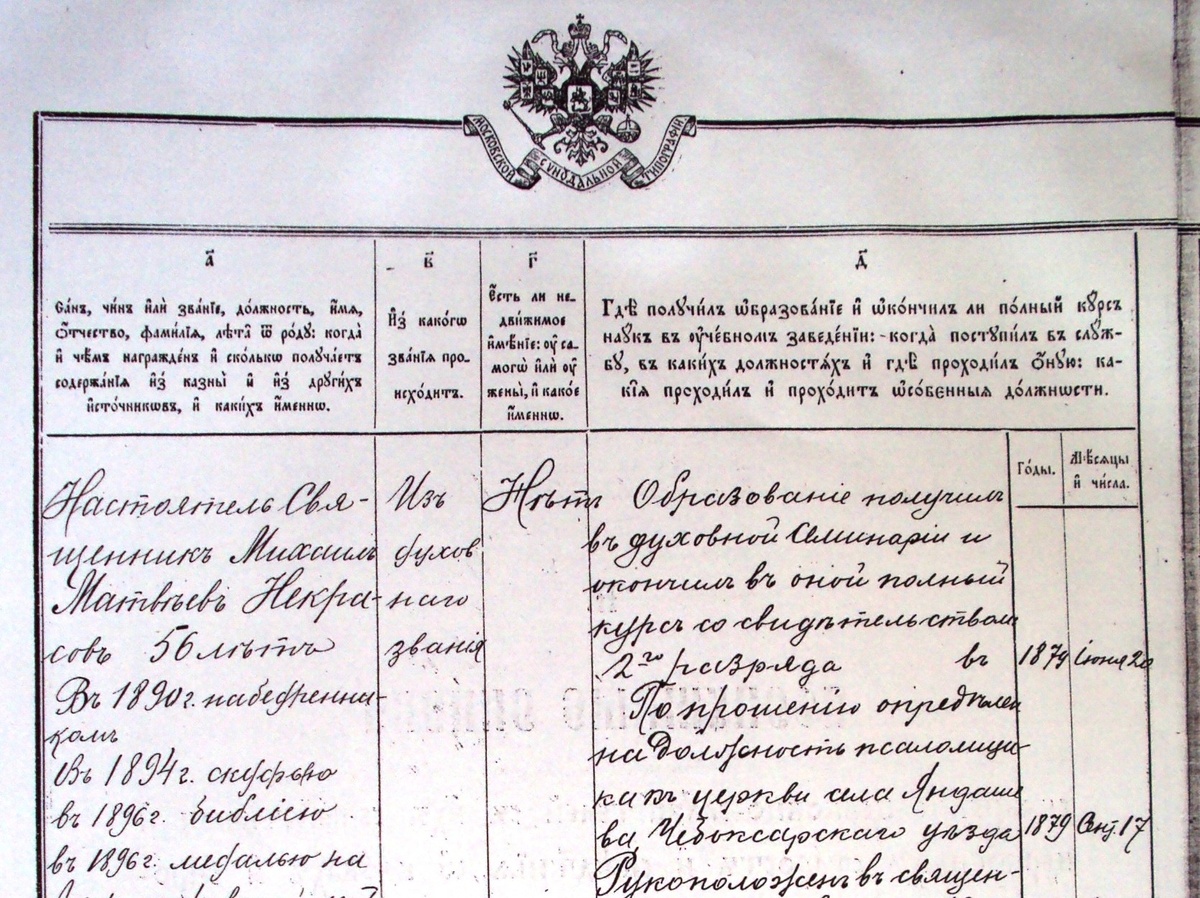 МОСКОВСКОЙ СѴНОДАЛЬНОЙ ТИПОГРАФІИ
а҃
Са́нъ, чи́нъ и҆лѝ зва́нїе, до́лжность, и҆́мѧ,
ѻ҆́тчество, фами́лїѧ, лѣ́та ѿ ро́дꙋ: когда̀
и҆ чѣ́мъ награжде́нъ и҆ ско́лькѡ получа́етъ
содержа́нїѧ и҆з̾ казны̀ и҆ и҆з̾ дрꙋги́хъ
и҆сто́чникѡвъ, и҆ каки́хъ и҆́меннѡ.
в҃
И҆з̾ како́гѡ
зва́нїѧ про-
исхо́дитъ.
г҃
Є҆́сть ли не-
дви́жимое
и҆мѣ́нїе: ᲂу҆ са-
могѡ̀ и҆лѝ ᲂу҆
жены̀, и҆ како́е
и҆́меннѡ.
д҃
Гдѣ̀ полꙋчи́лъ ѡ҆бразова́нїе и҆ ѡ҆ко́нчилъ ли по́лный кꙋ́рсъ
наꙋ́къ въ ᲂу҆че́бномъ заведе́нїи: - когда̀ постꙋпи́лъ въ слꙋ́ж-
бꙋ, въ каки́хъ должностѧ́хъ и҆ гдѣ̀ проходи́лъ ѻ҆́нꙋю: ка-
кі̑ѧ проходи́лъ и҆ прохо́дитъ ѡ҆со́бенныѧ до́лжнѡсти.
Го́ды.
Мѣ́сѧцы
и҆ чи́сла.
Настоятель Свя-
щенникъ Михаилъ
Матвѣевъ Некра-
совъ 56 лѣтъ
Въ 1890 г. набедренни-
комъ
Въ 1894 г. скуфьею
въ 1896 г. библіею
въ 1896 г. медалью на
Изъ
духов
наго
званія
Нѣтъ
Образованіе получилъ
въ духовной Семинаріи и
окончилъ въ оной полный
курсъ со свидѣтельствомъ
2го разряда въ 1879 Іюня 20
По прошенію опредѣленъ
на должность псаломщи-
ка къ церкви села Яндаше
ва Чебоксарскаго уѣзда 1879 Сент. 17
Рукоположенъ въ священ-